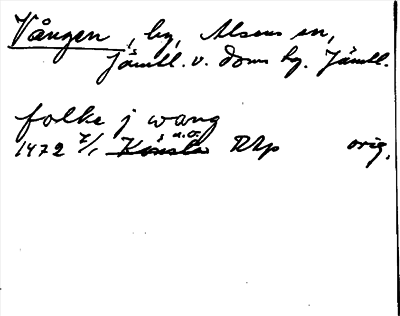 Vången, by, Alsens sn,
Jämtl. v. doms hg. Jämtl.
folke j wang
u.o.
1472 7/1 Könsta RAp orig.